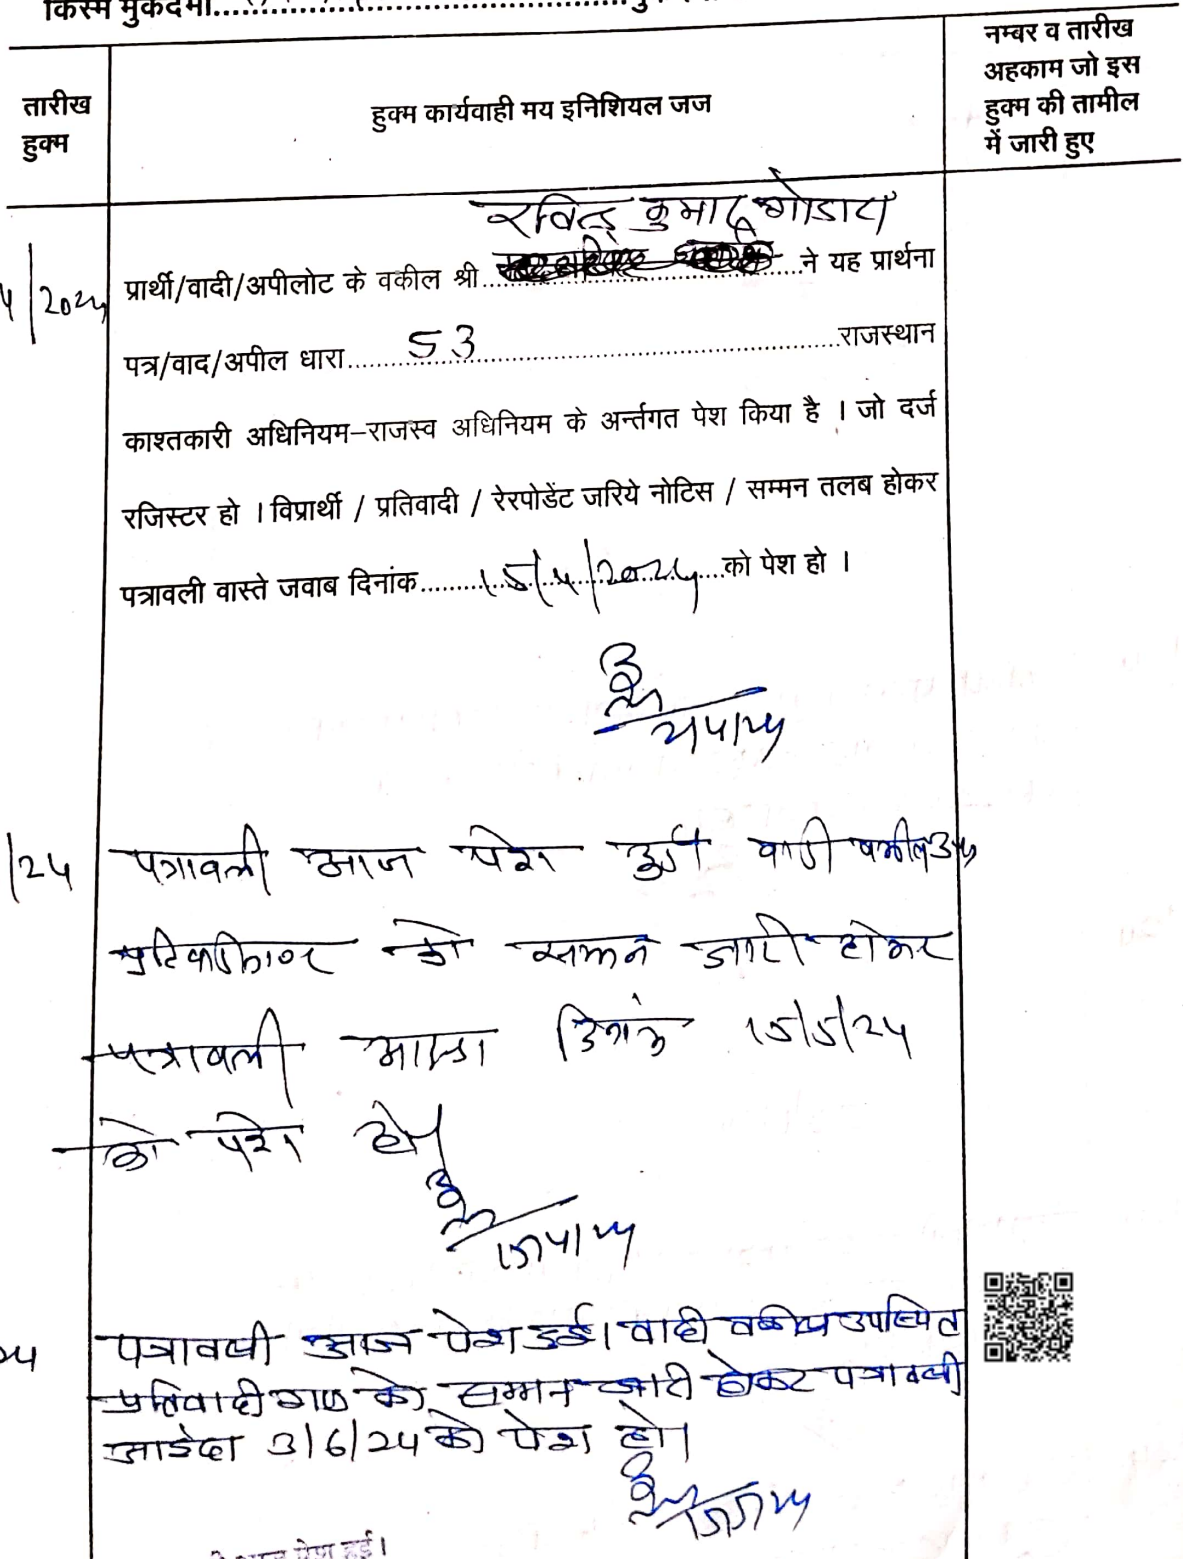 किस्म मुकदमा
नम्बर व तारीख
अहकाम जो इस
हुक्म की तामील
में जारी हुए
तारीख
हुक्म
हुक्म कार्यवाही मय इनिशियल जज
रविन्द्र कुमार गोडारा
4/2024
प्रार्थी/वादी/अपीलोट के वकील श्री ने यह प्रार्थना
पत्र/वाद/अपील धारा 53 राजस्थान
काश्तकारी अधिनियम-राजस्व अधिनियम के अर्न्तगत पेश किया है । जो दर्ज
रजिस्टर हो । विप्रार्थी / प्रतिवादी / रेरपोडेंट जरिये नोटिस / सम्मन तलब होकर
पत्रावली वास्ते जवाब दिनांक 15/4/2024 को पेश हो ।
/24 पत्रावली आज पेश हुई वादी वकील उप
प्रतिवादीगण को सम्मन जारी होकर
पत्रावली आइन्दा दिनांक 15/5/24
को पेश हो।
24 पत्रावली आज पेश हुई। वादी वकील उपस्थित
प्रतिवादी गण को सम्मन जारी होकर पत्रावली
आइंदा 3/6/24 को पेश हो।
पेश हुई।